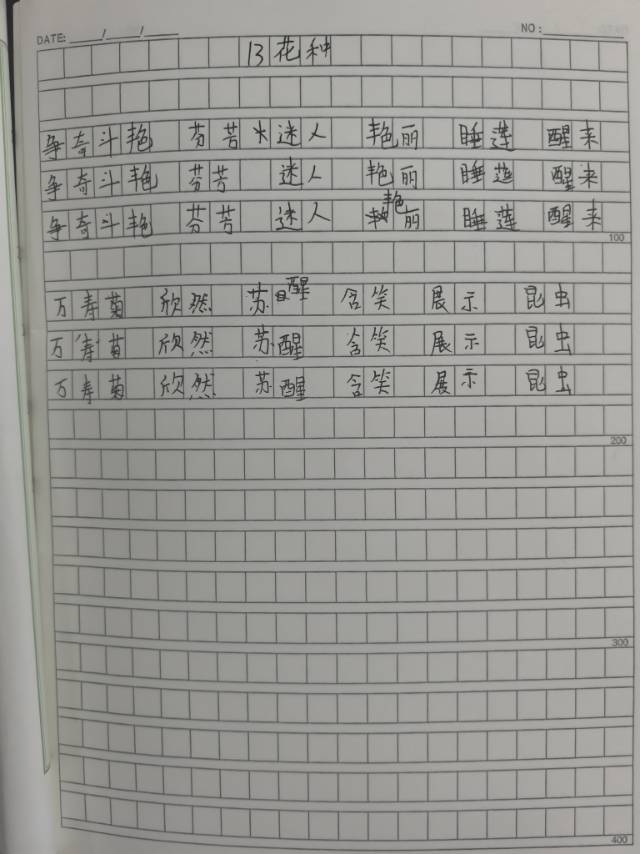 DATE: ____/____/____ NO: ________
13花种
争奇斗艳 芬芳 迷人 艳丽 睡莲 醒来
争奇斗艳 芬芳 迷人 艳丽 睡莲 醒来
争奇斗艳 芬芳 迷人 艳丽 睡莲 醒来
100
万寿菊 欣然 苏醒 含笑 展示 昆虫
万寿菊 欣然 苏醒 含笑 展示 昆虫
万寿菊 欣然 苏醒 含笑 展示 昆虫
200
300
400